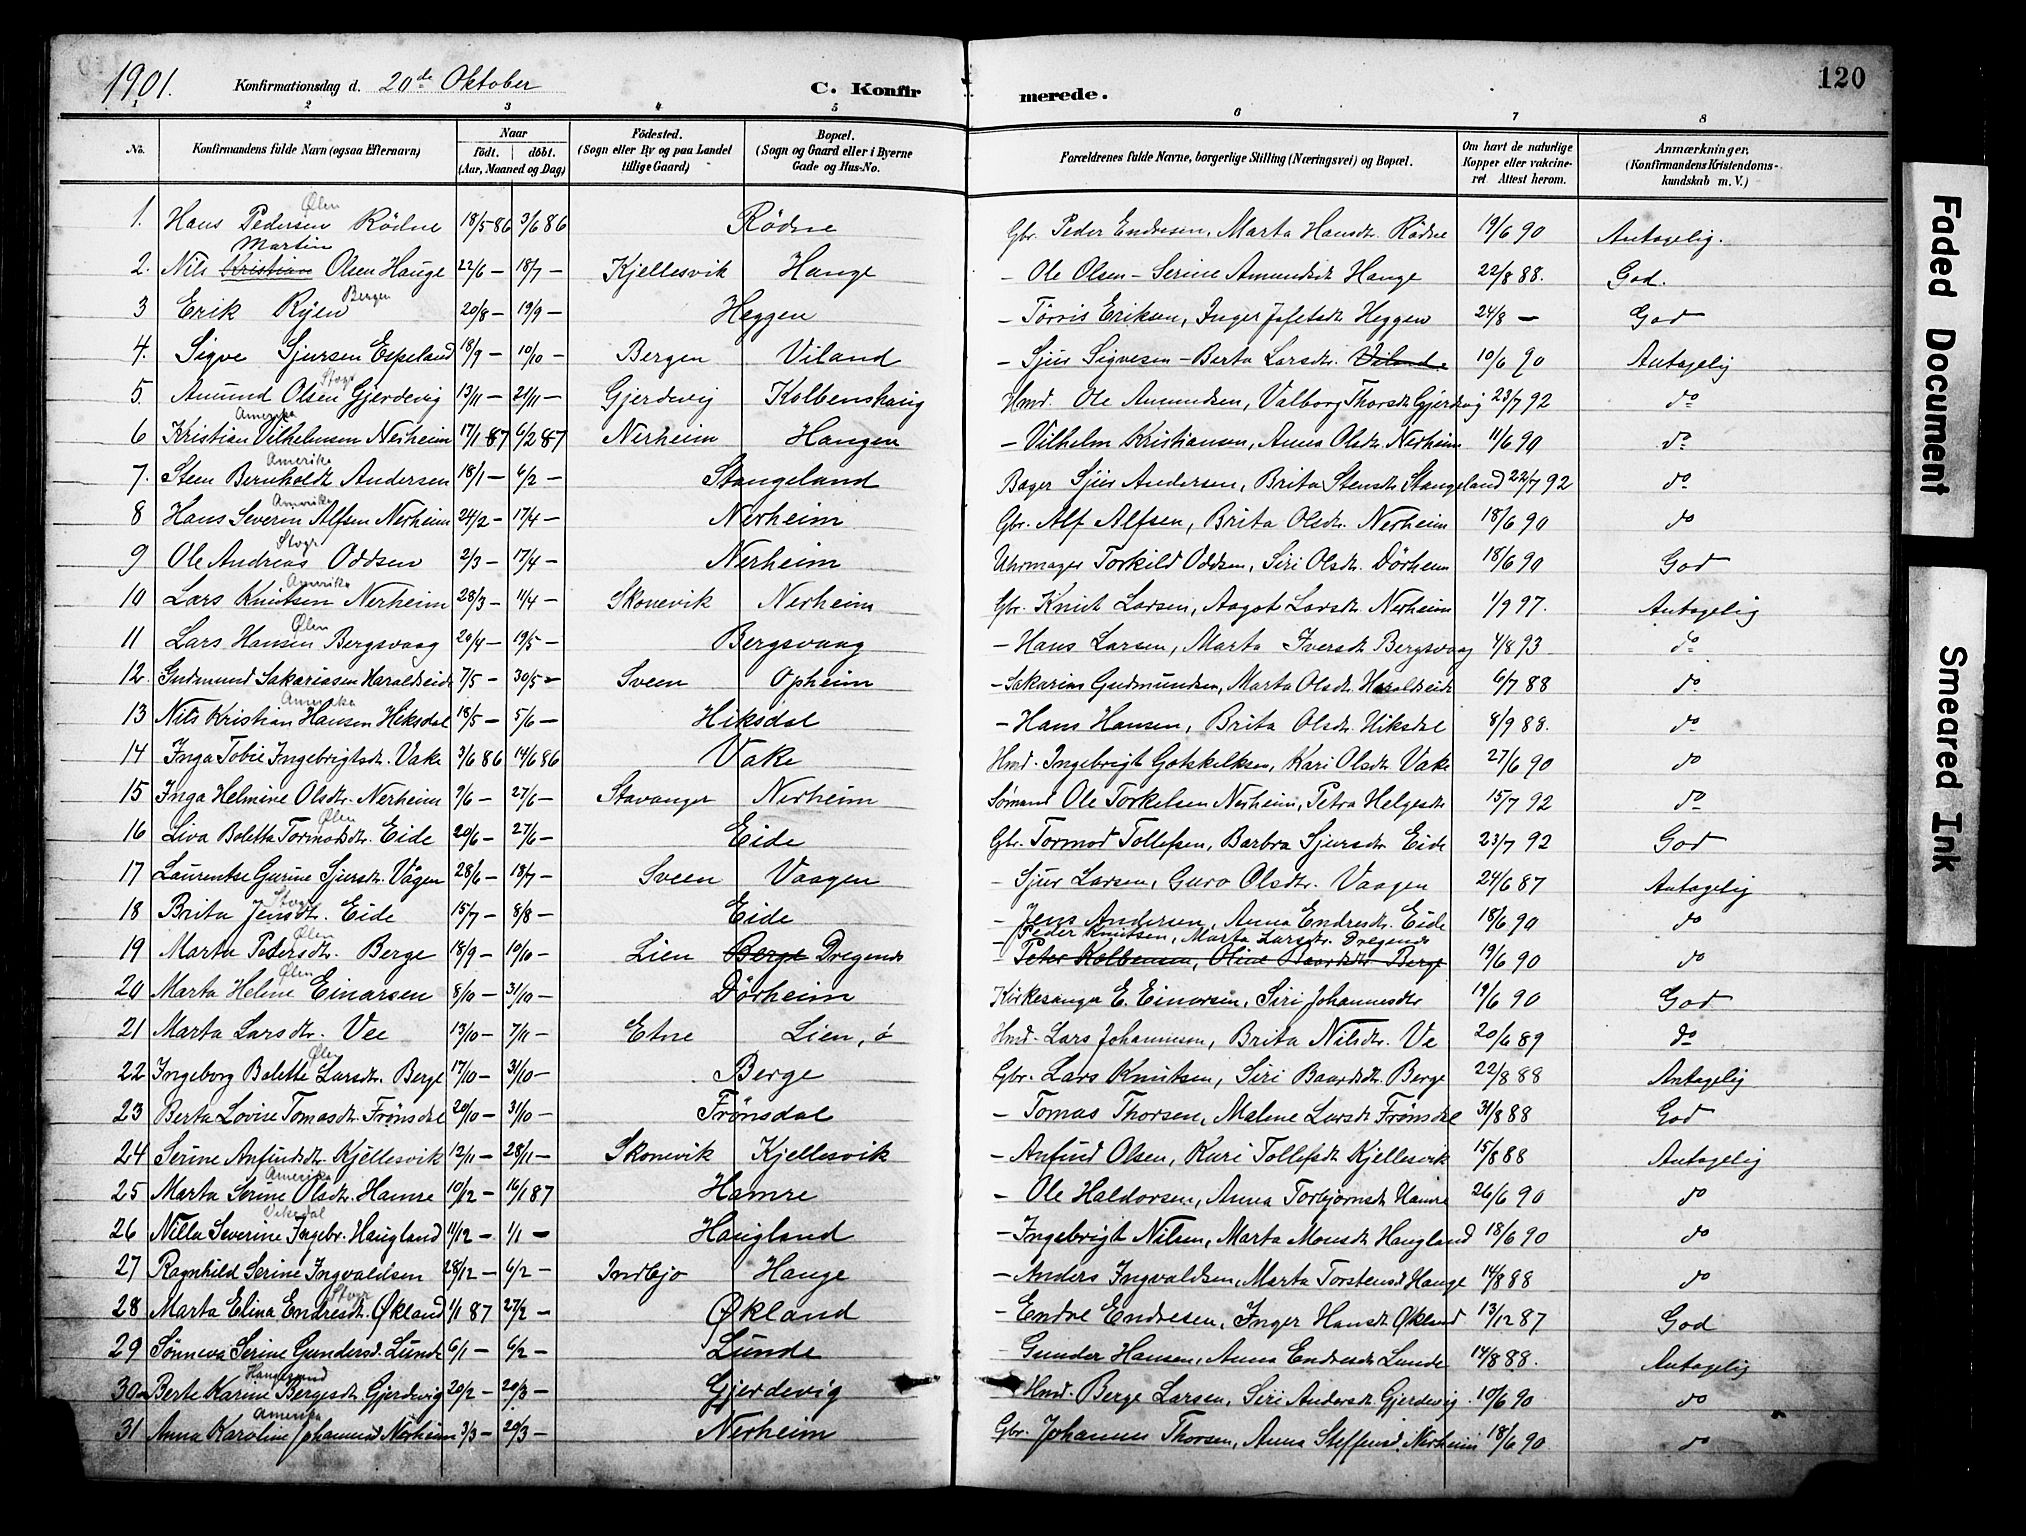 1901. Konfirmationsdag d. 20de Oktober C. Konfirmerede. 120
1 2 3 4 5 6 7 8
No. Konfirmandens fulde Navn (ogsaa Efternavn) Naar født. døbt. (Aar, Maaned og Dag) Fødested. (Sogn eller By og paa Landet tillige Gaard) Bopæl. (Sogn og Gaard eller i Byerne Gade og Hus-No. Forældrenes fulde Navne, borgerlige Stilling (Næringsvei) og Bopæl. Om havt de naturlige Kopper eller vakcineret Attest herom. Anmærkninger, (Konfirmandens Kristendomskundskab m. V.)
Ølen
1. Hans Pedersen Rødne 18/5-86 3/6 86 Rødne Gbr. Peder Endresen, Marta Hansdt. Rødne 19/6 90 Antagelig.
Martin
2. Nils Kristian Olsen Hauge 22/6 - 18/7 - Kjellesvik Hauge - Ole Olsen - Serine Amundsdt Hauge 22/8 88. God.
Bergen
3 Erik Ryen 20/8 - 19/9 - Heggen - Tørris Eriksen, Inger Jofetsdt Heggen 24/8 - God
4. Sigve Sjursen Espeland 18/9 - 10/10 - Bergen Viland - Sjur Sigvesen - Berta Larsdtr. Viland. 10/6 90 Antagelig
Stvgr
5 Amund Olsen Gjerdevig 13/11 - 21/11 - Gjerdevig Kolbenshaug Hmd. Ole Amundsen, Valborg Thorsdt Gjerdevig 23/7 92 do
Amerika
6 Kristian Vilhelmsen Nerheim 17/1-87 6/2 87 Nerheim Haugen - Vilhelm Kristiansen, Anna Olsdt. Nerheim 11/6 90 do
Amerika
7. Sten Bernholdt Andersen 18/1 - 6/2 - Stangeland Bager Sjur Andersen, Brita Stensdt Stangeland 22/7 92 do
Amerika
8 Hans Severin Alfsen Nerheim 24/2 - 17/4 - Nerheim Gbr. Alf Alfsen, Brita Olsdt. Nerheim 18/6 90 do
Stvgr
9 Ole Andreas Oddsen 2/3 - 17/4 - Nerheim Uhrmager Torkild Oddsen, Siri Olsdt. Dörheim 18/6 90 God
Amerika
10 Lars Knutsen Nerheim 28/3 - 11/4 - Skonevik Nerheim Gbr. Knut Larsen, Aagot Larsdt. Nerheim 1/9 97. Antagelig
Ølen
11 Lars Hansen Bergsvaag 20/4 - 19/5 - Bergsvaag - Hans Larsen, Marta Iversdt Bergsvaag 4/8 93 do
12. Gudmund Sakariasen Haraldseide 7/5 - 30/5 - Sveen Opheim - Sakarias Gudmundsen, Marta Olsdt. Haraldseide 6/7 88 do
Amerika
13 Nils Kristian Hansen Hiksdal 18/5 - 5/6 - Hiksdal - Hans Hansen, Brita Olsdt. Hiksdal 8/9 88. do
14 Inga Tobie Ingebrigtsdt. Vake 3/6 86 14/6 86 Vake Hmd. Ingebrigt Gotskelksen, Kari Olsdt. Vake 27/6 90 do
15 Inga Helmine Olsdt. Nerheim 9/6 - 27/6 - Stavanger Nerheim Sømand Ole Torkelsen Nerheim, Petra Helgesdt 15/7 92 do
Ølen
16 Liva Boletta Tormodsdt. Eide 20/6 - 27/6 - Eide Gbr. Tormod Tollefsen, Barbra Sjursdt. Eide 23/7 92 God
17 Laurentse Gurine Sjursdt. Vågen 28/6 - 18/7 - Sveen Vaagen - Sjur Larsen, Guro Olsdtr. Vaagen 24/6 87 Antagelig
Stvgr
18 Brita Jensdt. Eide 15/7 - 8/8 - Eide - Jens Andersen, Anna Endresdt. Eide 18/6 90 do
Ølen - Peder Knutsen, Marta Larsdtr. Dregends
19 Marta Pedersdt. Berge 18/9 - 10/10 - Lien Berge Dregends - Peter Kolbensen, Oline Baardsdt. Berge 19/6 90 do
Ølen
20 Marta Heline Einarsen 8/10 - 31/10 - Dörheim Kirkesanger E. Einarsen, Siri Johannesdtr 19/6 90 God
21 Marta Larsdtr. Vee 13/10 - 7/11 - Etne Lien, ö Hmd. Lars Johannesen, Brita Nilsdt. Ve 20/6 89 do
Ølen
22 Ingeborg Bolette Larsdt. Berge 17/10 - 31/10 - Berge Gbr. Lars Knutsen, Siri Baardsdt. Berge 22/8 88 Antagelig
23 Berta Lovise Tomasdt. Frönsdal 20/10 - 31/10 - Frönsdal - Tomas Thorsen, Malene Larsdt Frönsdal 31/8 88 God
24 Serine Anfindsdt. Kjellesvik 12/11 - 28/11 - Skonevik Kjellesvik - Anfind Olsen, Kari Tollefsdt Kjellesvik 15/8 88 Antagelig
Amerika
25 Marta Serine Olsdt. Hamre 10/12 - 16/1 87 Hamre - Ole Haldorsen, Anna Torbjørnsdt Hamre 26/6 90 do
Vikedal
26 Nilla Severine Ingebr. Haugland 11/12 - 1/1 - Haugland - Ingebrigt Nilsen, Marta Monsdt Haugland 18/6 90 do
27 Ragnhild Serine Ingvaldsen 28/12 - 6/2 - Indbjo Hauge - Anders Ingvaldsen, Marta Torstensd Hauge 14/8 88 do
Stvgr
28 Marta Elina Endresdt. Økland 1/1 87 27/2 - Økland - Endre Endresen, Inger Hansdt. Økland 13/12 87 God
29 Sønneva Serine Gundersd. Lunde 6/1 - 6/2 - Lunde - Gunder Hansen, Anna Endresdt Lunde 14/8 88. Antagelig
Haugesund
30 Berte Karine Bergesdt. Gjerdevig 20/2 - 20/3 - Gjerdevig - Hmd. Berge Larsen, Siri Andersdt. Gjerdevig 10/6 90 do
Amerika
31 Anna Karoline Johannesd Nerheim 3/3 - 20/3 - Nerheim Gbr. Johannes Thorsen, Anna Steffensd. Nerheim 18/6 90 do
Faded Document
Smeared Ink